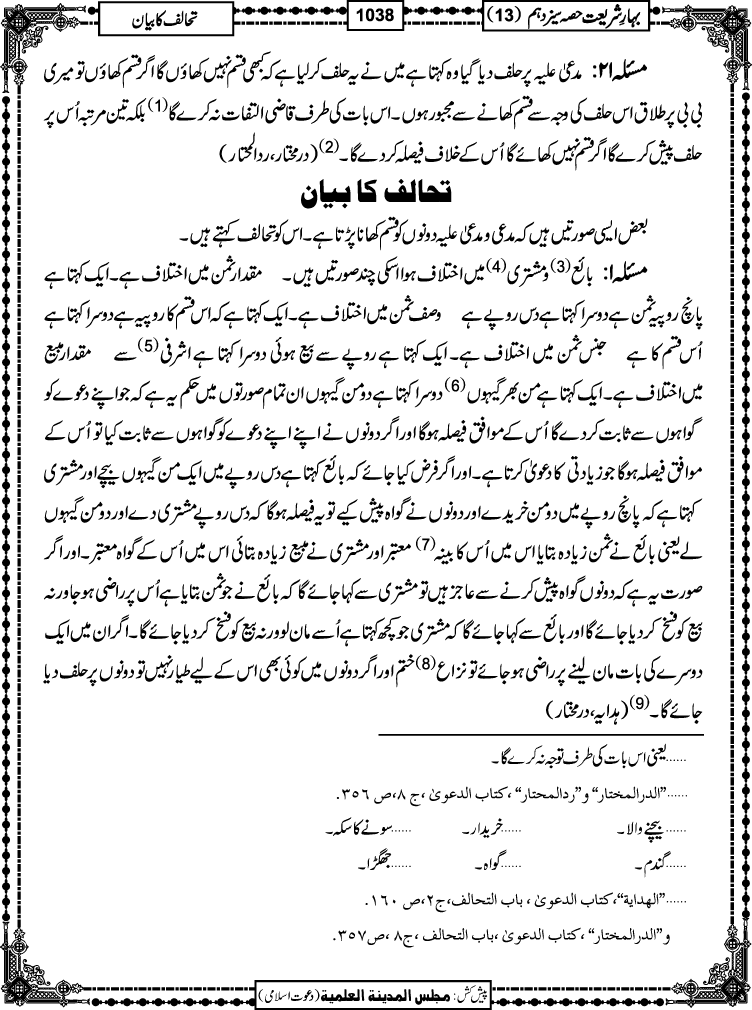 بہارِ شریعت حصہ سیزدہم (13)
1038
تحالف کا بیان
مسئلہ ۲۱: مدعیٰ علیہ پر حلف دیا گیا وہ کہتا ہے میں نے یہ حلف کر لیا ہے کہ کبھی قسم نہیں کھاؤں گا اگر قسم کھاؤں تو میری
بی بی پر طلاق اس حلف کی وجہ سے قسم کھانے سے مجبور ہوں۔ اس بات کی طرف قاضی التفات نہ کرے گا(1) بلکہ تین مرتبہ اُس پر
حلف پیش کرے گا اگر قسم نہیں کھائے گا اُس کے خلاف فیصلہ کر دے گا۔(2) (درمختار، ردالمحتار)
تحالف کا بیان
بعض ایسی صورتیں ہیں کہ مدعی و مدعیٰ علیہ دونوں کو قسم کھانا پڑتا ہے۔ اس کو تحالف کہتے ہیں۔
مسئلہ ۱: بائع(3) و مشتری(4) میں اختلاف ہوا اسکی چند صورتیں ہیں۔ مقدار ثمن میں اختلاف ہے۔ ایک کہتا ہے
پانچ روپیہ ثمن ہے دوسرا کہتا ہے دس روپے ہے وصف ثمن میں اختلاف ہے۔ ایک کہتا ہے کہ اس قسم کا روپیہ ہے دوسرا کہتا ہے
اُس قسم کا ہے جنس ثمن میں اختلاف ہے۔ ایک کہتا ہے روپے سے بیع ہوئی دوسرا کہتا ہے اشرفی(5) سے مقدار مبیع
میں اختلاف ہے۔ ایک کہتا ہے من بھر گیہوں(6) دوسرا کہتا ہے دو من گیہوں ان تمام صورتوں میں حکم یہ ہے کہ جو اپنے دعوے کو
گواہوں سے ثابت کر دے گا اُس کے موافق فیصلہ ہوگا اور اگر دونوں نے اپنے اپنے دعوے کو گواہوں سے ثابت کیا تو اُس کے
موافق فیصلہ ہوگا جو زیادتی کا دعویٰ کرتا ہے۔ اور اگر فرض کیا جائے کہ بائع کہتا ہے دس روپے میں ایک من گیہوں بیچے اور مشتری
کہتا ہے کہ پانچ روپے میں دو من خریدے اور دونوں نے گواہ پیش کیے تو یہ فیصلہ ہوگا کہ دس روپے مشتری دے اور دو من گیہوں
لے یعنی بائع نے ثمن زیادہ بتایا اس میں اُس کا بینہ(7) معتبر اور مشتری نے مبیع زیادہ بتائی اس میں اُس کے گواہ معتبر۔ اور اگر
صورت یہ ہے کہ دونوں گواہ پیش کرنے سے عاجز ہیں تو مشتری سے کہا جائے گا کہ بائع نے جو ثمن بتایا ہے اُس پر راضی ہو جا ورنہ
بیع کو فسخ کر دیا جائے گا اور بائع سے کہا جائے گا کہ مشتری جو کچھ کہتا ہے اُسے مان لو ورنہ بیع کو فسخ کر دیا جائے گا۔ اگر ان میں ایک
دوسرے کی بات مان لینے پر راضی ہو جائے تو نزاع(8) ختم اور اگر دونوں میں کوئی بھی اس کے لیے طیار نہیں تو دونوں پر حلف دیا
جائے گا۔(9) (ہدایہ، درمختار)
......یعنی اس بات کی طرف توجہ نہ کرے گا۔
......"الدرالمختار" و"ردالمحتار"، کتاب الدعویٰ، ج ۸، ص ۳۵۶.
......بیچنے والا۔ ......خریدار۔ ......سونے کا سکہ۔
......گندم۔ ......گواہ۔ ......جھگڑا۔
......"الھدایة"، کتاب الدعویٰ، باب التحالف، ج۲، ص ۱۶۰.
و"الدرالمختار"، کتاب الدعویٰ، باب التحالف، ج۸، ص۳۵۷.
پیش کش: مجلس المدینۃ العلمیۃ (دعوت اسلامی)